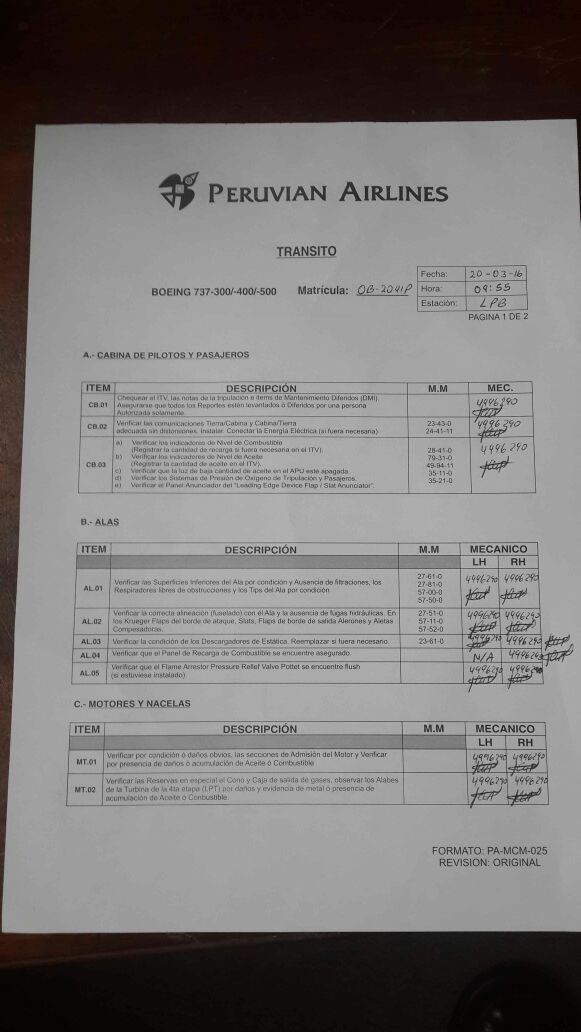 PERUVIAN AIRLINES
TRANSITO
BOEING 737-300/-400/-500 Matrícula: OB-2041P
Fecha: 20-03-16
Hora: 09:55
Estación: LPB
PAGINA 1 DE 2
A.- CABINA DE PILOTOS Y PASAJEROS
ITEM DESCRIPCIÓN M.M MEC.
CB.01 Chequear el ITV, las notas de la tripulación e items de Mantenimiento Diferidos (DMI). 4996290
Asegurarse que todos los Reportes estén levantados ó Diferidos por una persona
Autorizada solamente.
CB.02 Verificar las comunicaciones Tierra/Cabina y Cabina/Tierra 23-43-0 4996290
adecuada sin distorsiones. Instalar. Conectar la Energía Eléctrica (si fuera necesaria) 24-41-11
CB.03 a) Verificar los indicadores de Nivel de Combustible 28-41-0 4996290
(Registrar la cantidad de recarga si fuera necesaria en el ITV).
b) Verificar los indicadores de Nivel de Aceite 79-31-0
(Registrar la cantidad de aceite en el ITV).
c) Verificar que la luz de baja cantidad de aceite en el APU esté apagada. 49-94-11
d) Verificar los Sistemas de Presión de Oxígeno de Tripulación y Pasajeros. 35-11-0
e) Verificar el Panel Anunciador del "Leading Edge Device Flap / Slat Anunciator". 35-21-0
B.- ALAS
ITEM DESCRIPCIÓN M.M MECANICO
LH RH
AL.01 Verificar las Superficies Inferiores del Ala por condición y Ausencia de filtraciones, los 27-61-0 4996290 4996290
Respiradores libres de obstrucciones y los Tips del Ala por condición 27-81-0
57-00-0
57-50-0
AL.02 Verificar la correcta alineación (fuselado) con el Ala y la ausencia de fugas hidráulicas. En 27-51-0 4996290 4996290
los Krueger Flaps del borde de ataque, Slats, Flaps de borde de salida Alerones y Aletas 57-11-0
Compesadoras. 57-52-0
AL.03 Verificar la condición de los Descargadores de Estática. Reemplazar si fuera necesario. 23-61-0 4996290 4996290
AL.04 Verificar que el Panel de Recarga de Combustible se encuentre asegurado. N/A 4996290
AL.05 Verificar que el Flame Arrestor Pressure Relief Valvo Pottet se encuentre flush 4996290 4996290
(si estuviese instalado)
C.- MOTORES Y NACELAS
ITEM DESCRIPCIÓN M.M MECANICO
LH RH
MT.01 Verificar por condición ó daños obvios, las secciones de Admisión del Motor y Verificar 4996290 4996290
por presencia de daños ó acumulación de Aceite ó Combustible
MT.02 Verificar las Reservas en especial el Cono y Caja de salida de gases, observar los Alabes 4996290 4996290
de la Turbina de la 4ta etapa (LPT) por daños y evidencia de metal ó presencia de
acumulación de Aceite ó Combustible.
FORMATO: PA-MCM-025
REVISION: ORIGINAL